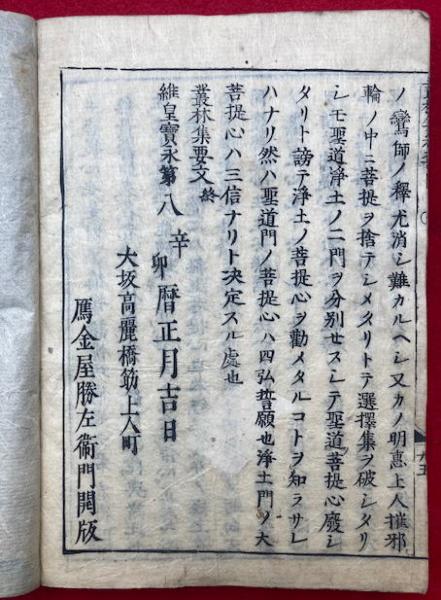 ノ鸞師ノ釋尤消シ難カルヘシ又カノ明惠上人摧邪
輪ノ中ニ菩提ヲ捨テシメタリトテ選擇集ヲ破シタリ
シモ聖道淨土ノ二門ヲ分別セスシテ聖道菩提心廢シ
タリト謗テ淨土ノ菩提心ヲ勸メタルコトヲ知ラサレ
ハナリ然ハ聖道門ノ菩提心ハ四弘誓願也淨土門ノ大
菩提心ハ三信ナリト决定スル處也
叢林集要文終
維皇寶永第八辛卯曆正月吉日
大坂高麗橋筋上人町
鴈金屋勝左衛門開版